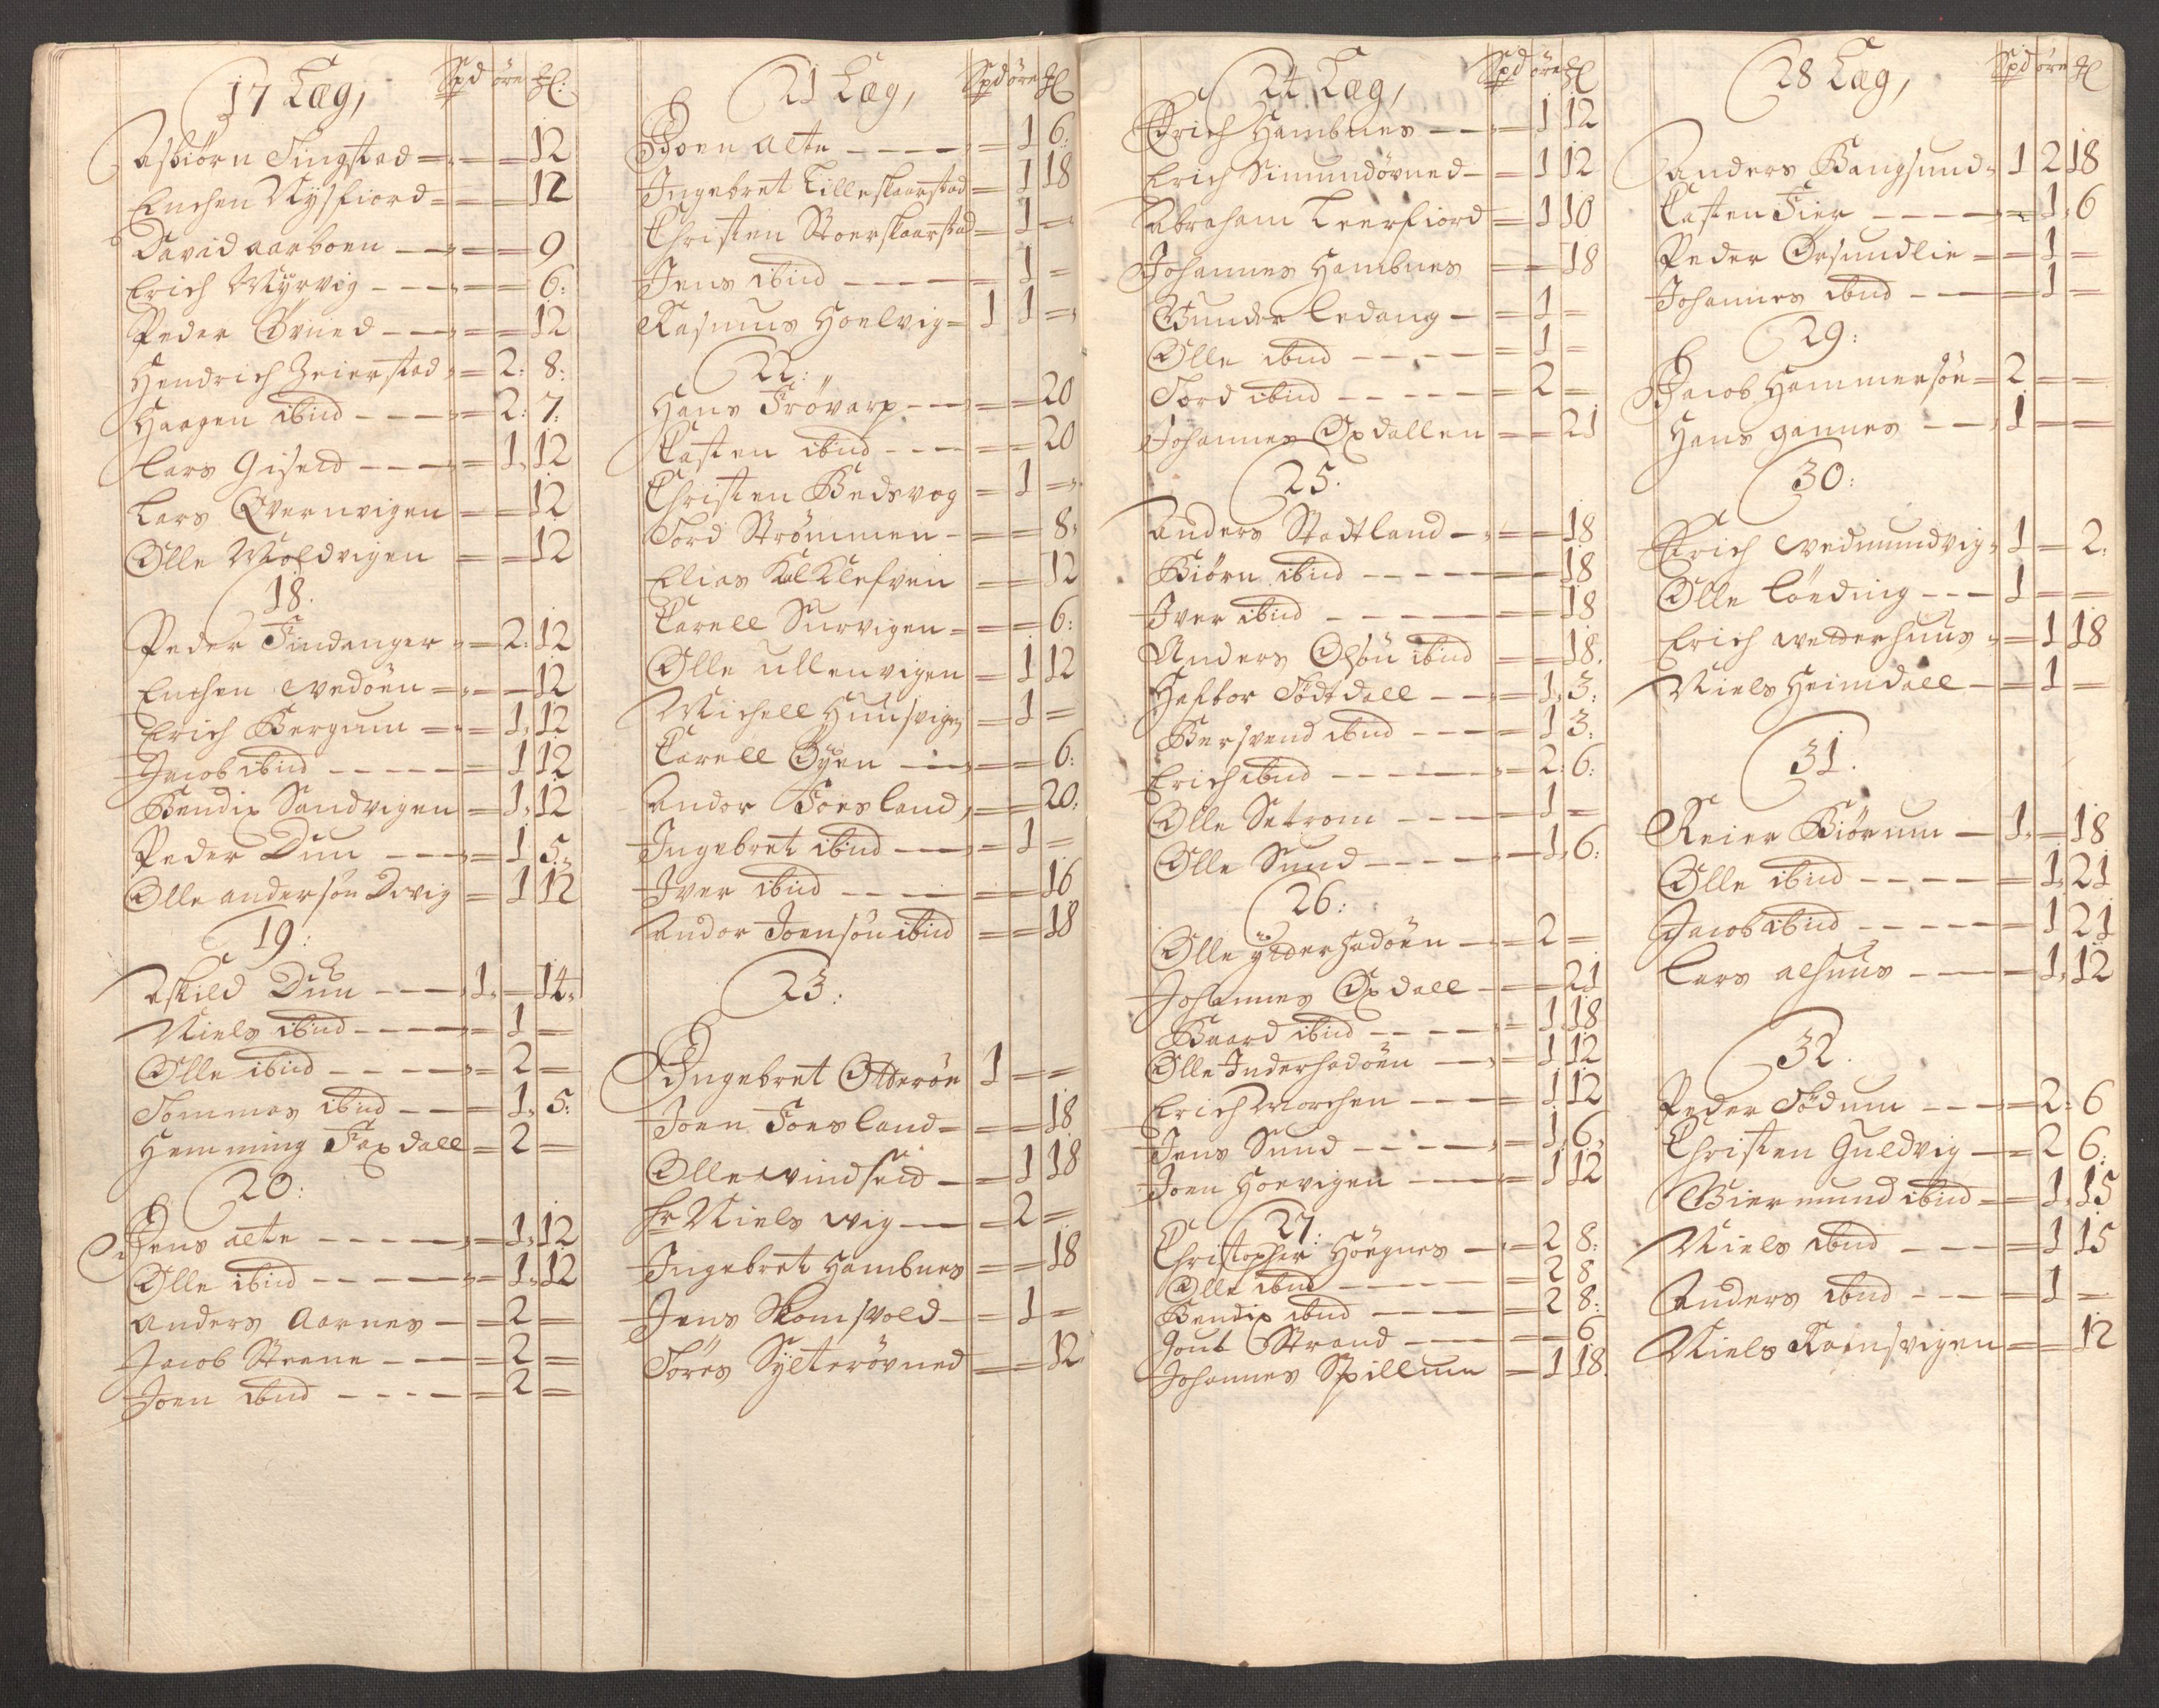 17 Læg, Spd öre ₰:
Asbiörn Tingstad = = = 12
Enchen Nysfiord = = = 12
David aarboen — = = 9
Erich Myrvig - - - = = 6:
Peder Övned - - - = = 12
Hendrich Zeierstad = 2: 8:
Haagen ibid - - - = 2: 7:
Lars Giseid - - - = 1, 12
Lars Qvernvigen = = 12
Olle Moldvigen = = 12
18.
Peder Findanger = 2: 12
Enchen Wedöen = = = 12
Erich Bergum = = 1, 12
Jacob ibid - - - - = 1 12
Bendix Sandvigen = 1, 12
Peder Dun - - - = 1 5:
Olle andersön Dvig = 1 12
19:
Askild Dun - - - 1, — 14:
Niels ibid - - - = 1 =
Olle ibid - - - - = 2 =
Tommas ibid - - = 1, 5:
Hemming Faxdall = 2 =
20:
Jens alte - - - - = 1, 12
Olle ibid - - - - = 1, 12
Anders Aarnes — = 2 =
Jacob Steene - - = 2 =
Joen ibid - - - - = 2 =
21 Læg, Spd öre ₰
Joen alte - - - - = 1 6:
Ingebret Lilleskaarstad = 1 18
Christen Stoerskaarstad = 1 =
Jens ibid - - - - = 1 =
Rasmus Hoelvig = 1 1 =
22:
Hans Frövarp - - = = 20
Casten ibid - - - = = 20
Christen Bedsvog = 1 =
Tord Strömmen - = = 8,
Elias Kalklefven = = 12
Carell Survigen = = = 6:
Olle ullenvigen = 1 12
Michell Hunsvigen = 1 =
Carell Öyen - - = = 6:
Andor Foesland, = = 20:
Ingebret ibid - - = 1 =
Iver ibid - - - - = = 16
Andor Joensön ibid = = 18
23:
Ingebret Otterön 1 = =
Joen Foesland = = = 18
Olle Windseid — = 1 18
hr Niels Wig — = 2 =
Ingebret Hambnes = = 18
Jens Skomsvold — = 1 =
Töres Sylterövned = = 12
24 Læg, Spd öre ₰
Erich Hambnes — — = 1 12
Erich Simundövned — = 1 12
Abraham Leerfiord = 1 10
Johannes Hambnes = = 18
Gunder Ledang — = 1 =
Olle ibid - - - - = 1 =
Tord ibid - - - - = 2 =
Johannes Opdallen = = 21
25.
Anders Stadtland — = = 18
Biörn ibid - - - - = = 18
Iver ibid - - - - = = 18
Anders Olsön ibid = = 18.
Hafbor Södtdall - - = 1, 3:
Bersvend ibid - - - = 1 3:
Erich ibid - - - - = 2: 6:
Olle Setrom - - - = 1 =
Olle Sund - - - - = 1, 6:
26:
Olle ytterhadöen — = 2 =
Johannes Opdall — = = 21
Baard ibid - - - - = 1 18
Olle Inderhadöen — = 1 12
Erich Morchen - - - = 1 12
Jens Sund - - - - = 1, 6,
Joen Hoevigen - - - = 1 12
27:
Christopher Höegnes — = 2 8:
Olle ibid - - - - = 2 8
Bendix ibid - - - = 2 8:
Gout Strand — = = 6
Johannes Spillum = 1 18.
28 Læg, Spd öre ₰
Anders Bangsund = 1 2 18
Casten Fier - - - - = 1, 6
Peder Örsundlie = = 1 =
Johannes ibid - - - = 1 =
29:
Jacob Hammersön = 2 = =
Hans gannes - - - 1 = =
30:
Erich Wedmundvig, 1 = 2:
Olle Lönding - - - 1 = =
Erich Wetterhuus = = 1 18
Niels Heimdall — = 1 =
31.
Reier Biörum — 1, = 18
Olle ibid - - - - = 1, 21
Jacob ibid - - - - = 1 21
Lars alhuus - - - = 1, 12
32.
Peder Födum - - - = 2: 6
Christen Guldvig — = 2 6:
Giermund ibid — = 1, 15
Niels ibid - - - = 1 15
Anders ibid - - - = 1 =
Niels Ramsvigen = = 12